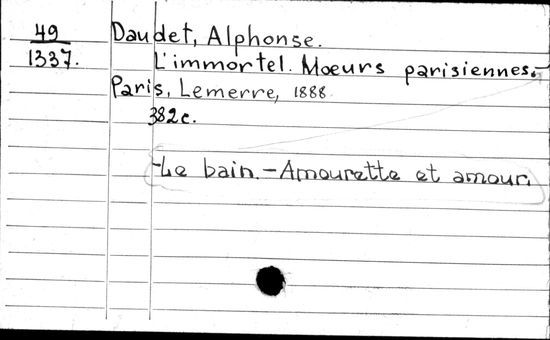 49
1337.
Daudet, Alphonse.
L'immortel. Moeurs parisiennes.-
Paris, Lemerre, 1888.
382c.
-Le bain.-Amourette et amour.